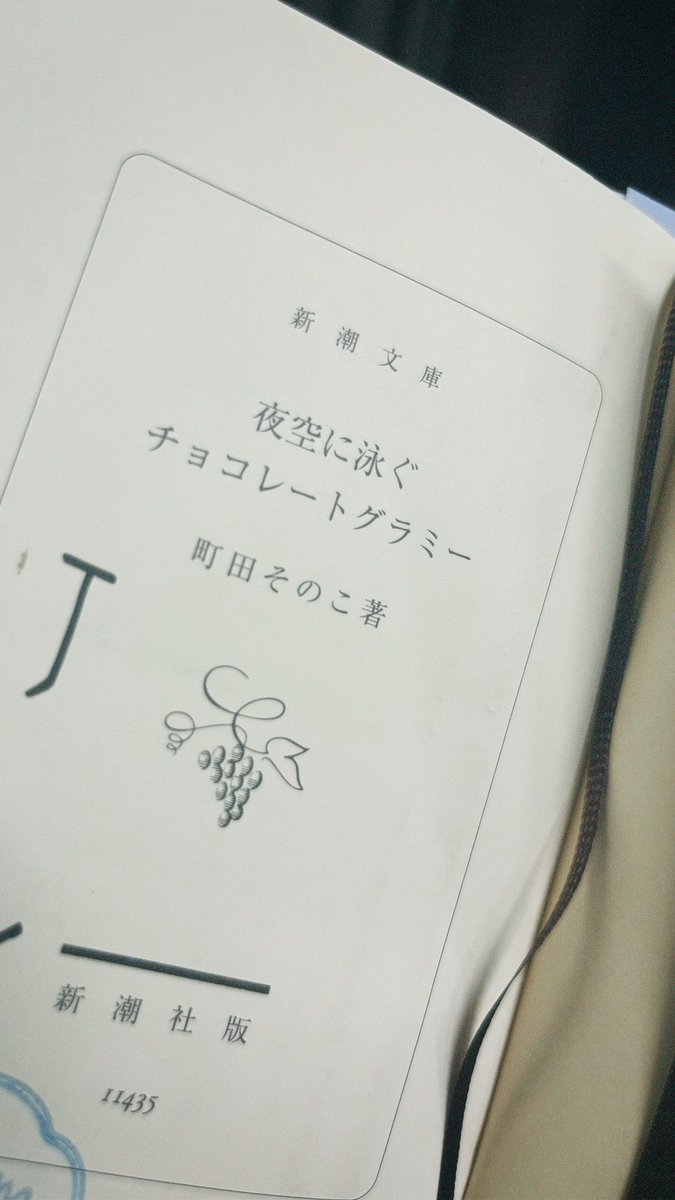 新潮文庫
夜空に泳ぐ
チョコレートグラミー
町田そのこ著
新潮社版
11435